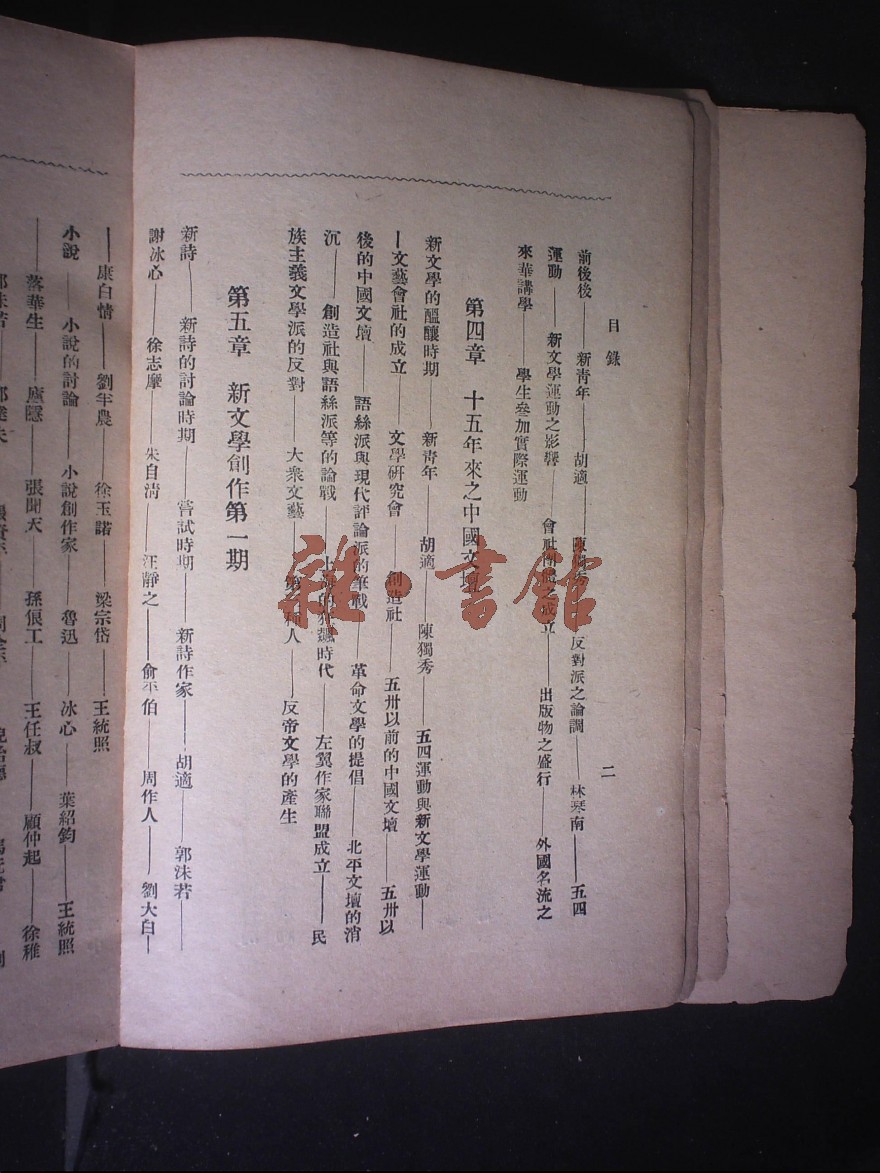 目錄
二
前後後——新青年——胡適——陳獨秀——反對派之論調——林琹南——五四
運動——新文學運動之影響——會社團體之成立——出版物之盛行——外國名流之
來華講學——學生參加實際運動
第四章　十五年來之中國文壇
新文學的醞釀時期——新青年——胡適　陳獨秀——五四運動與新文學運動——
—文藝會社的成立——文學研究會——創造社——五卅以前的中國文壇——五卅以
後的中國文壇——語絲派與現代評論派的筆戰——革命文學的提倡——北平文壇的消
沉——創造社與語絲派等的論戰——上海的狂飆時代——左翼作家聯盟成立——民
族主義文學派的反對——大衆文藝——第三種人——反帝文學的產生
第五章　新文學創作第一期
新詩——新詩的討論時期——嘗試時期——新詩作家——胡適——郭沫若——
謝冰心——徐志摩——朱自淸——汪靜之——俞平伯——周作人——劉大白—
——康白情——劉半農——徐玉諾——梁宗岱——王統照
小說——小說的討論——小說創作家——魯迅——冰心——葉紹鈞——王統照
——落華生——廬隱——張聞天——孫俍工——王任叔——顧仲起——徐稚
雜·書館